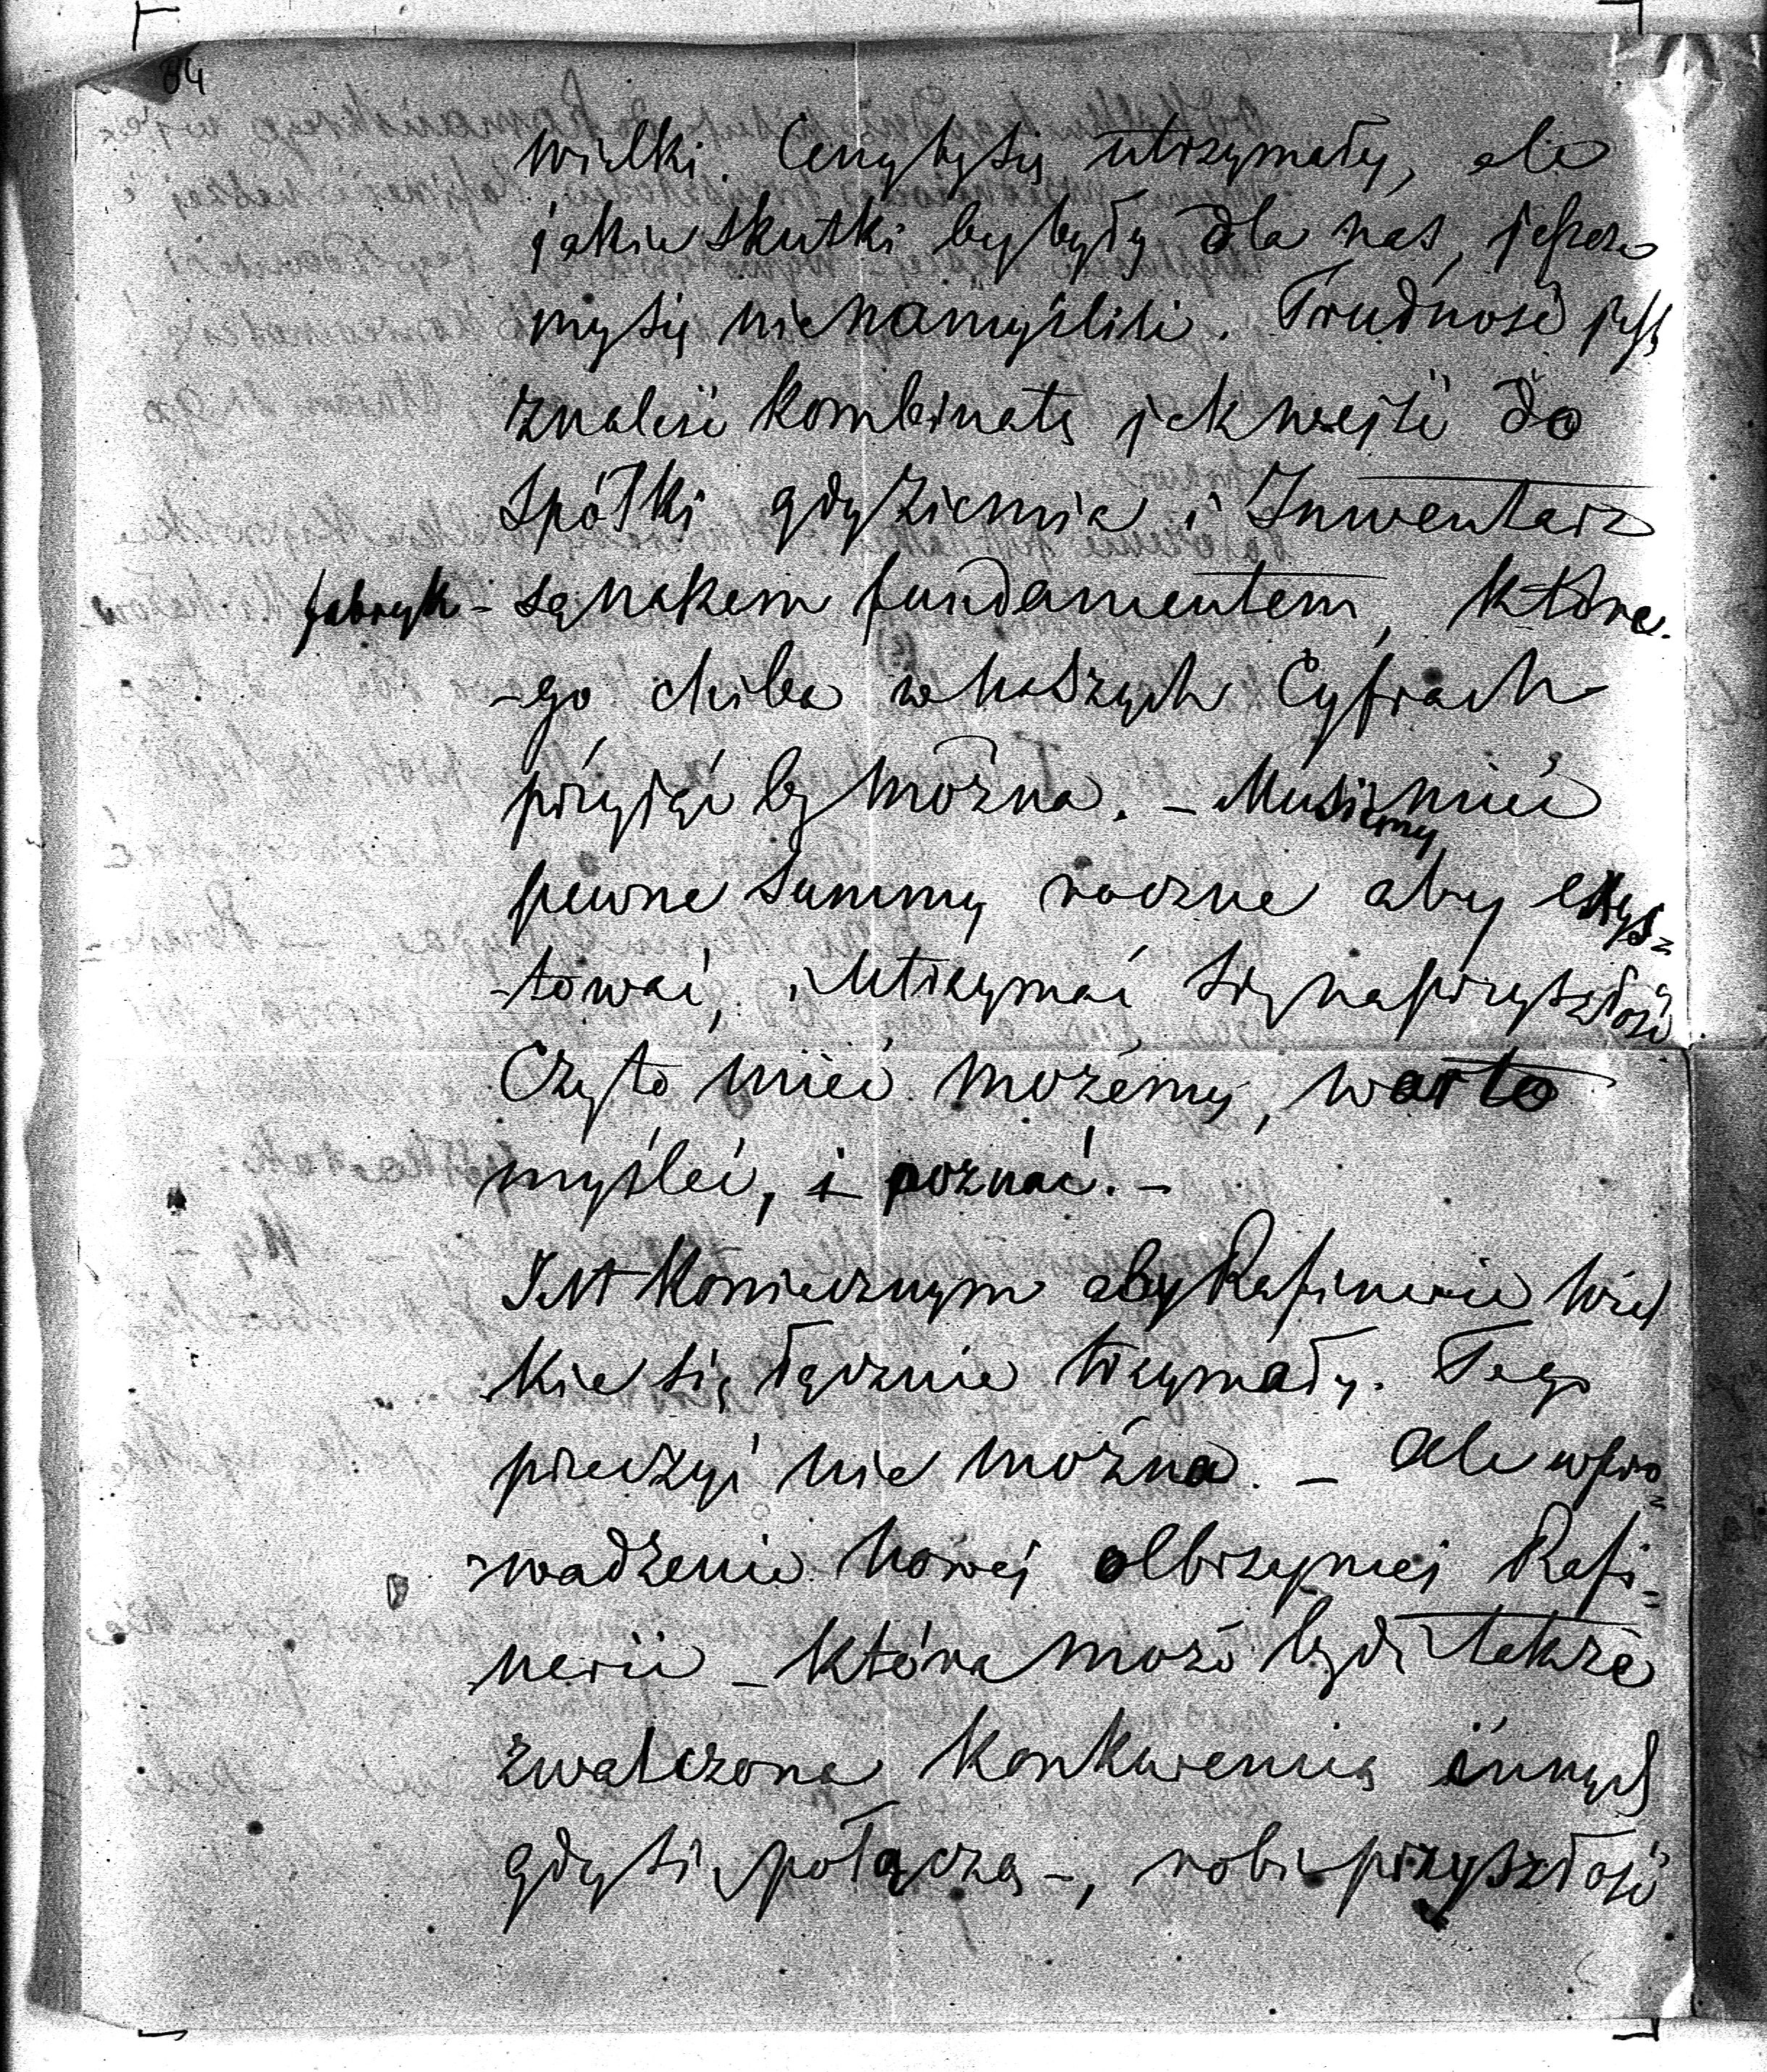 84
wielki. Ceny by się utrzymały, ale
jakie skutki by były dla nas, jeszcze
my się nie namyślili. Trudność jest
znaleść kombinatę jak wejść do
Spółki gdy Ziemia i Inwentarz
fabryk - są naszem fundamentem, które-
-go chiba w naszych Cyfrach
przyjąć by można. - Musiemy mieć
pewne Summy roczne aby egzys=
-tować, i utrzymać się na przyszłość
Czy to mieć możemy, warto
myśleć, i poznać. -
Jest koniecznym aby Rafinerie Wiel
kie się łącznie trzymały. Tego
przeczyć nie można. - Ale wpro=
=wadzenie nowej olbrzymiej Rafi=
nerii - która może być także
zwalczona konkurencią innych
gdy się połączą -, robi przyszłość